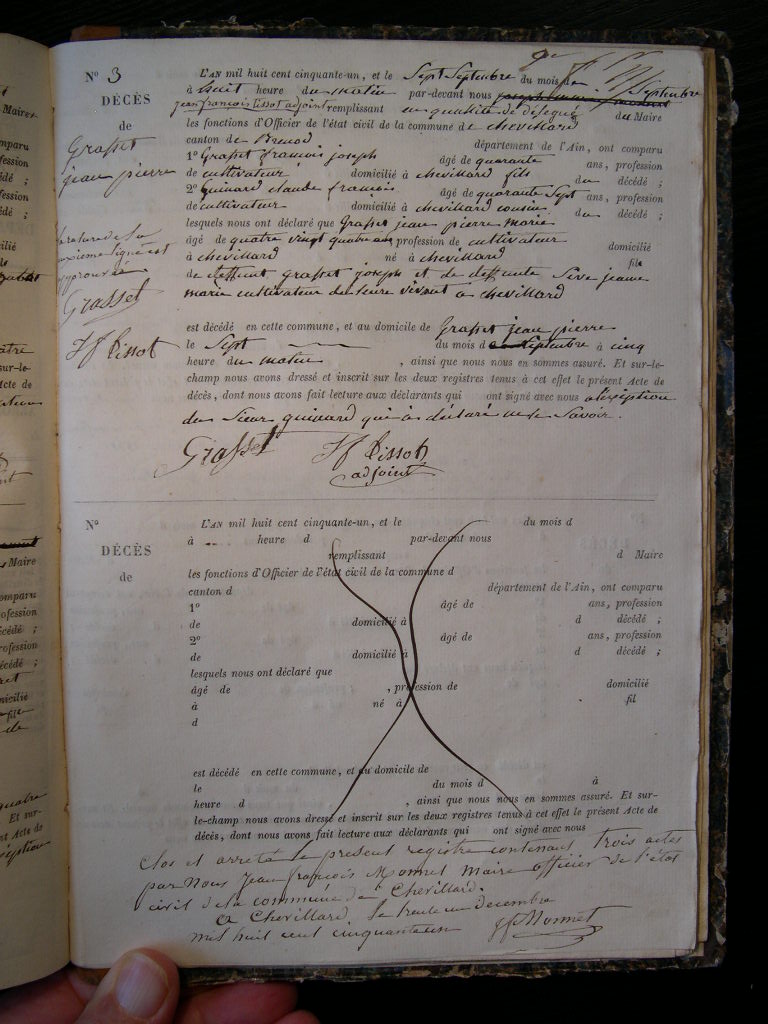 N° 3
DÉCÈS
de
Grasset
jean pierre
Grasset
Jf Pissot
L'AN mil huit cent cinquante-un, et le Sept Septembre du mois de Septembre
à huit heure du matin par-devant nous
jean françois Pissot adjoint remplissant en qualité de délégué du Maire
les fonctions d'Officier de l'état civil de la commune de chevillard
canton de Brenod département de l'Ain, ont comparu
1° Grasset françois joseph âgé de quarante ans, profession
de cultivateur domicilié à chevillard fils du décédé ;
2° guinard claude françois âgé de quarante Sept ans, profession
de cultivateur domicilié à chevillard cousin du décédé ;
lesquels nous ont déclaré que Grasset jean pierre marie
âgé de quatre vingt quatre ans profession de cultivateur domicilié
à chevillard né à chevillard fils
de deffunt grasset joseph et de deffunte Sive jeanne
marie cultivateur de leure vivant à chevillard
est décédé en cette commune, et au domicile de Grasset jean pierre
le Sept du mois de Septembre à cinq
heure du matin , ainsi que nous nous en sommes assuré. Et sur-le-
champ nous avons dressé et inscrit sur les deux registres tenus à cet effet le présent Acte de
décès, dont nous avons fait lecture aux déclarants qui ont signé avec nous a l'éxception
du Sieur guinard qui à déclaré ne le Savoir.
Grasset Jf Pissot
adjoint
N°
DÉCÈS
de
L'AN mil huit cent cinquante-un, et le du mois d
à heure d par-devant nous
remplissant d Maire
les fonctions d'Officier de l'état civil de la commune d
canton d département de l'Ain, ont comparu
1° âgé de ans, profession
de domicilié à d décédé ;
2° âgé de ans, profession
de domicilié à d décédé ;
lesquels nous ont déclaré que
âgé de , profession de domicilié
à né à fil
d
est décédé en cette commune, et au domicile de
le du mois d à
heure d , ainsi que nous nous en sommes assuré. Et sur-
le-champ nous avons dressé et inscrit sur les deux registres tenus à cet effet le présent Acte de
décès, dont nous avons fait lecture aux déclarants qui ont signé avec nous
Clos et arreté le present registre contenant trois actes
par Nous Jean françois Monnet Maire officier de l'état
civil de la commune de Chevillard.
A Chevillard, le trente un decembre
mil huit cent cinquante un
jf Monnet